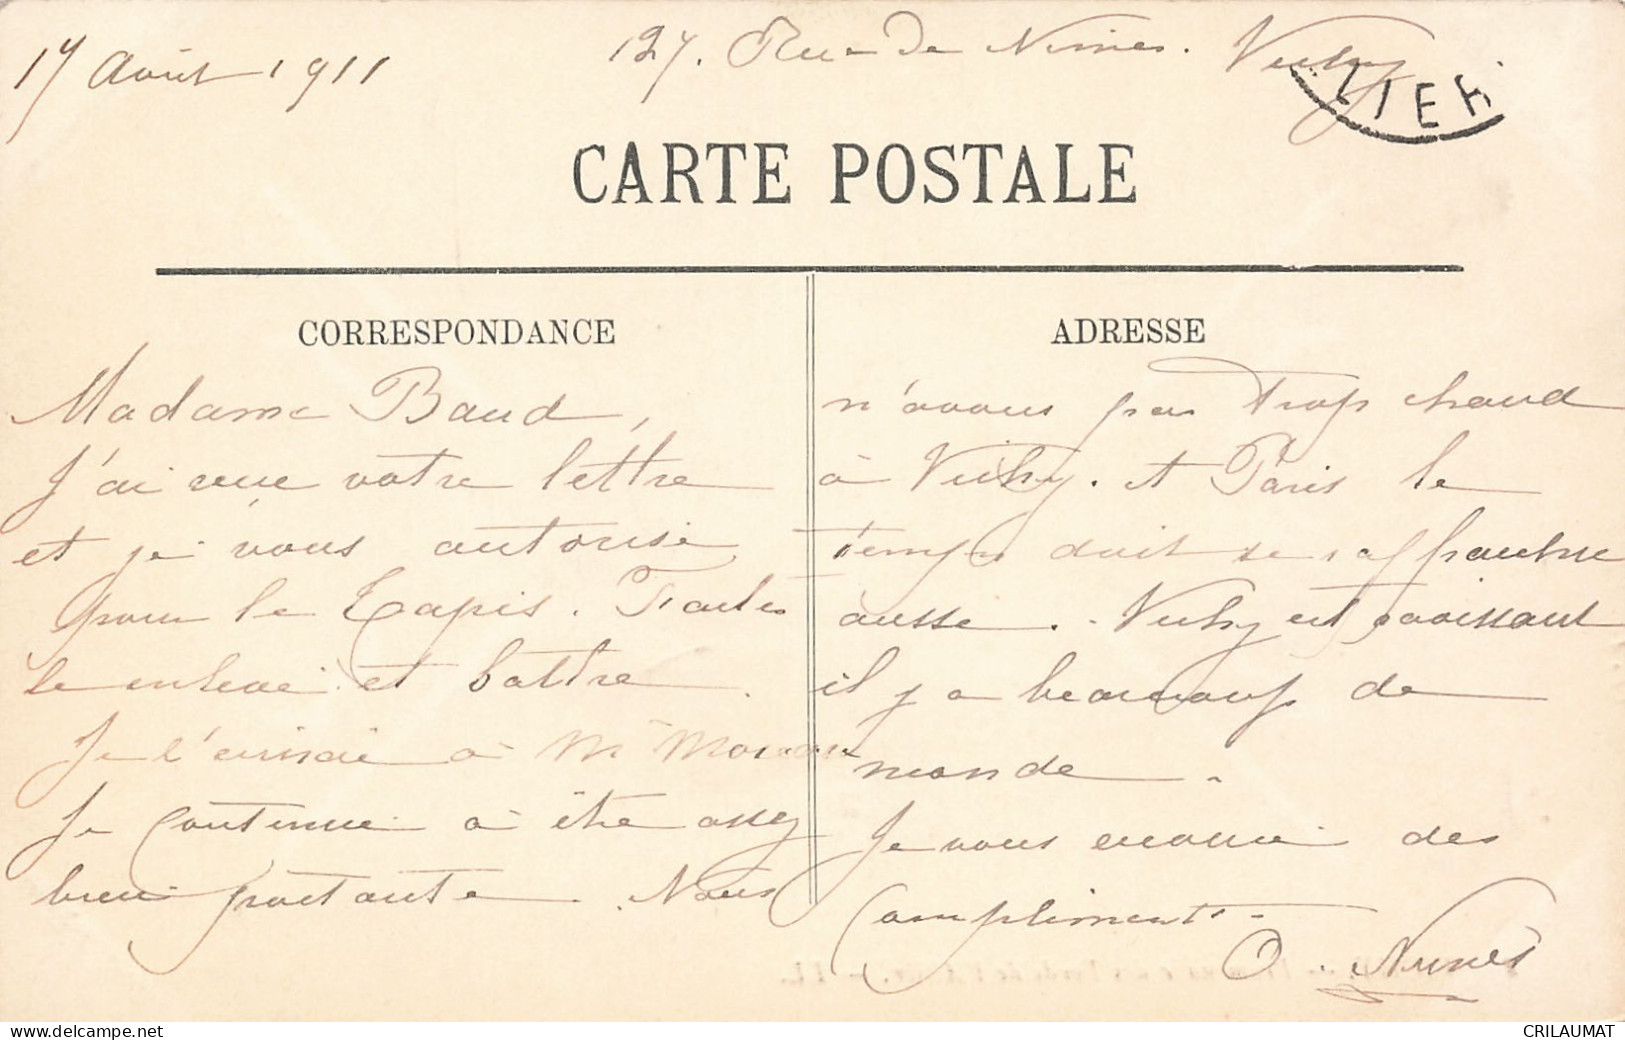 17 Août 1911
127. Rue de Nimes. Vichy
LIER
CARTE POSTALE
CORRESPONDANCE
Madame Baud,
J'ai reçue votre lettre
et je vous autorise
pour le tapis. Faites
le enleve et battre.
Je l'écrirai à M
Je continue à être assez
bien portante. Nous
ADRESSE
n'avons pas trop chaud
à Vichy. et Paris le
temps doit se raffraichir
aussi. Vichy est
il y a beaucoup de
monde.
Je vous envoie des
compliments.
O. Nunès
www.delcampe.net
CRILAUMAT